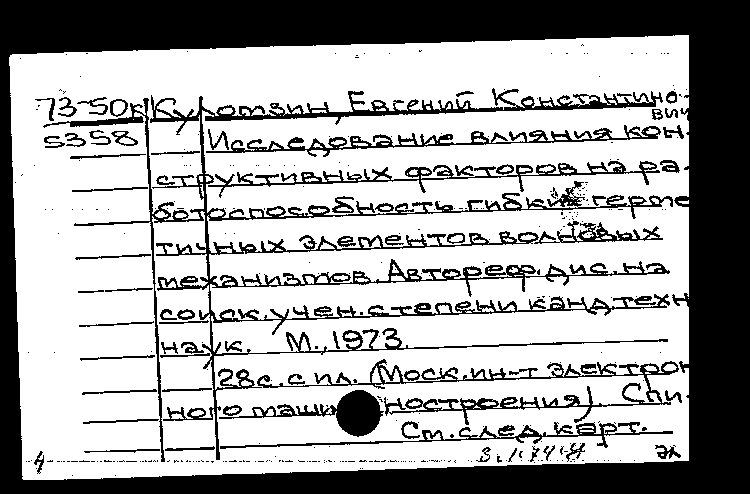 73-50к Кулотзин, Евгений Константино-
5358 вич
Исследование влияния кон-
структивных факторов на ра-
ботоспособность гибких герме
тичных элементов волновых
механизмов. Автореф. дис. на
соиск. учен. степени канд. техн
наук. М., 1973.
28с. с ил. (Моск. ин-т электрон
ного маши ностроения). Спи-
См. след. карт.
4